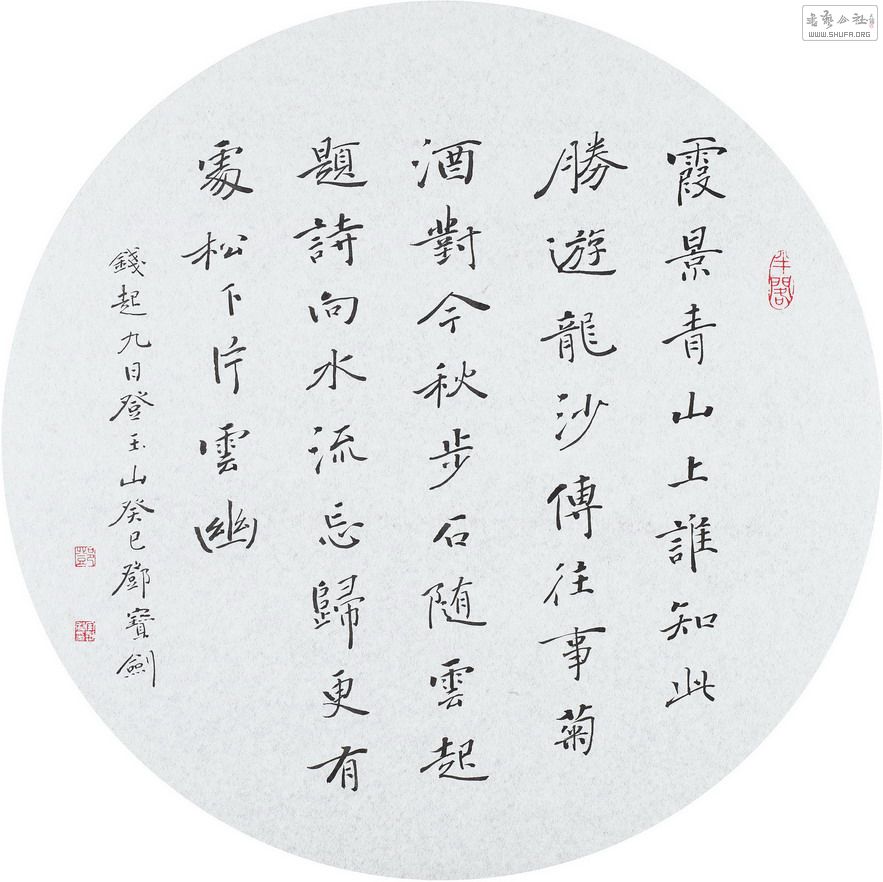 霞景青山上誰知此
勝遊龍沙傳往事菊
酒對今秋步石随雲起
題詩向水流忘歸更有
處松下片雲幽
錢起九日登玉山癸巳鄧寶劍
半閣
WWW.SHUFA.ORG